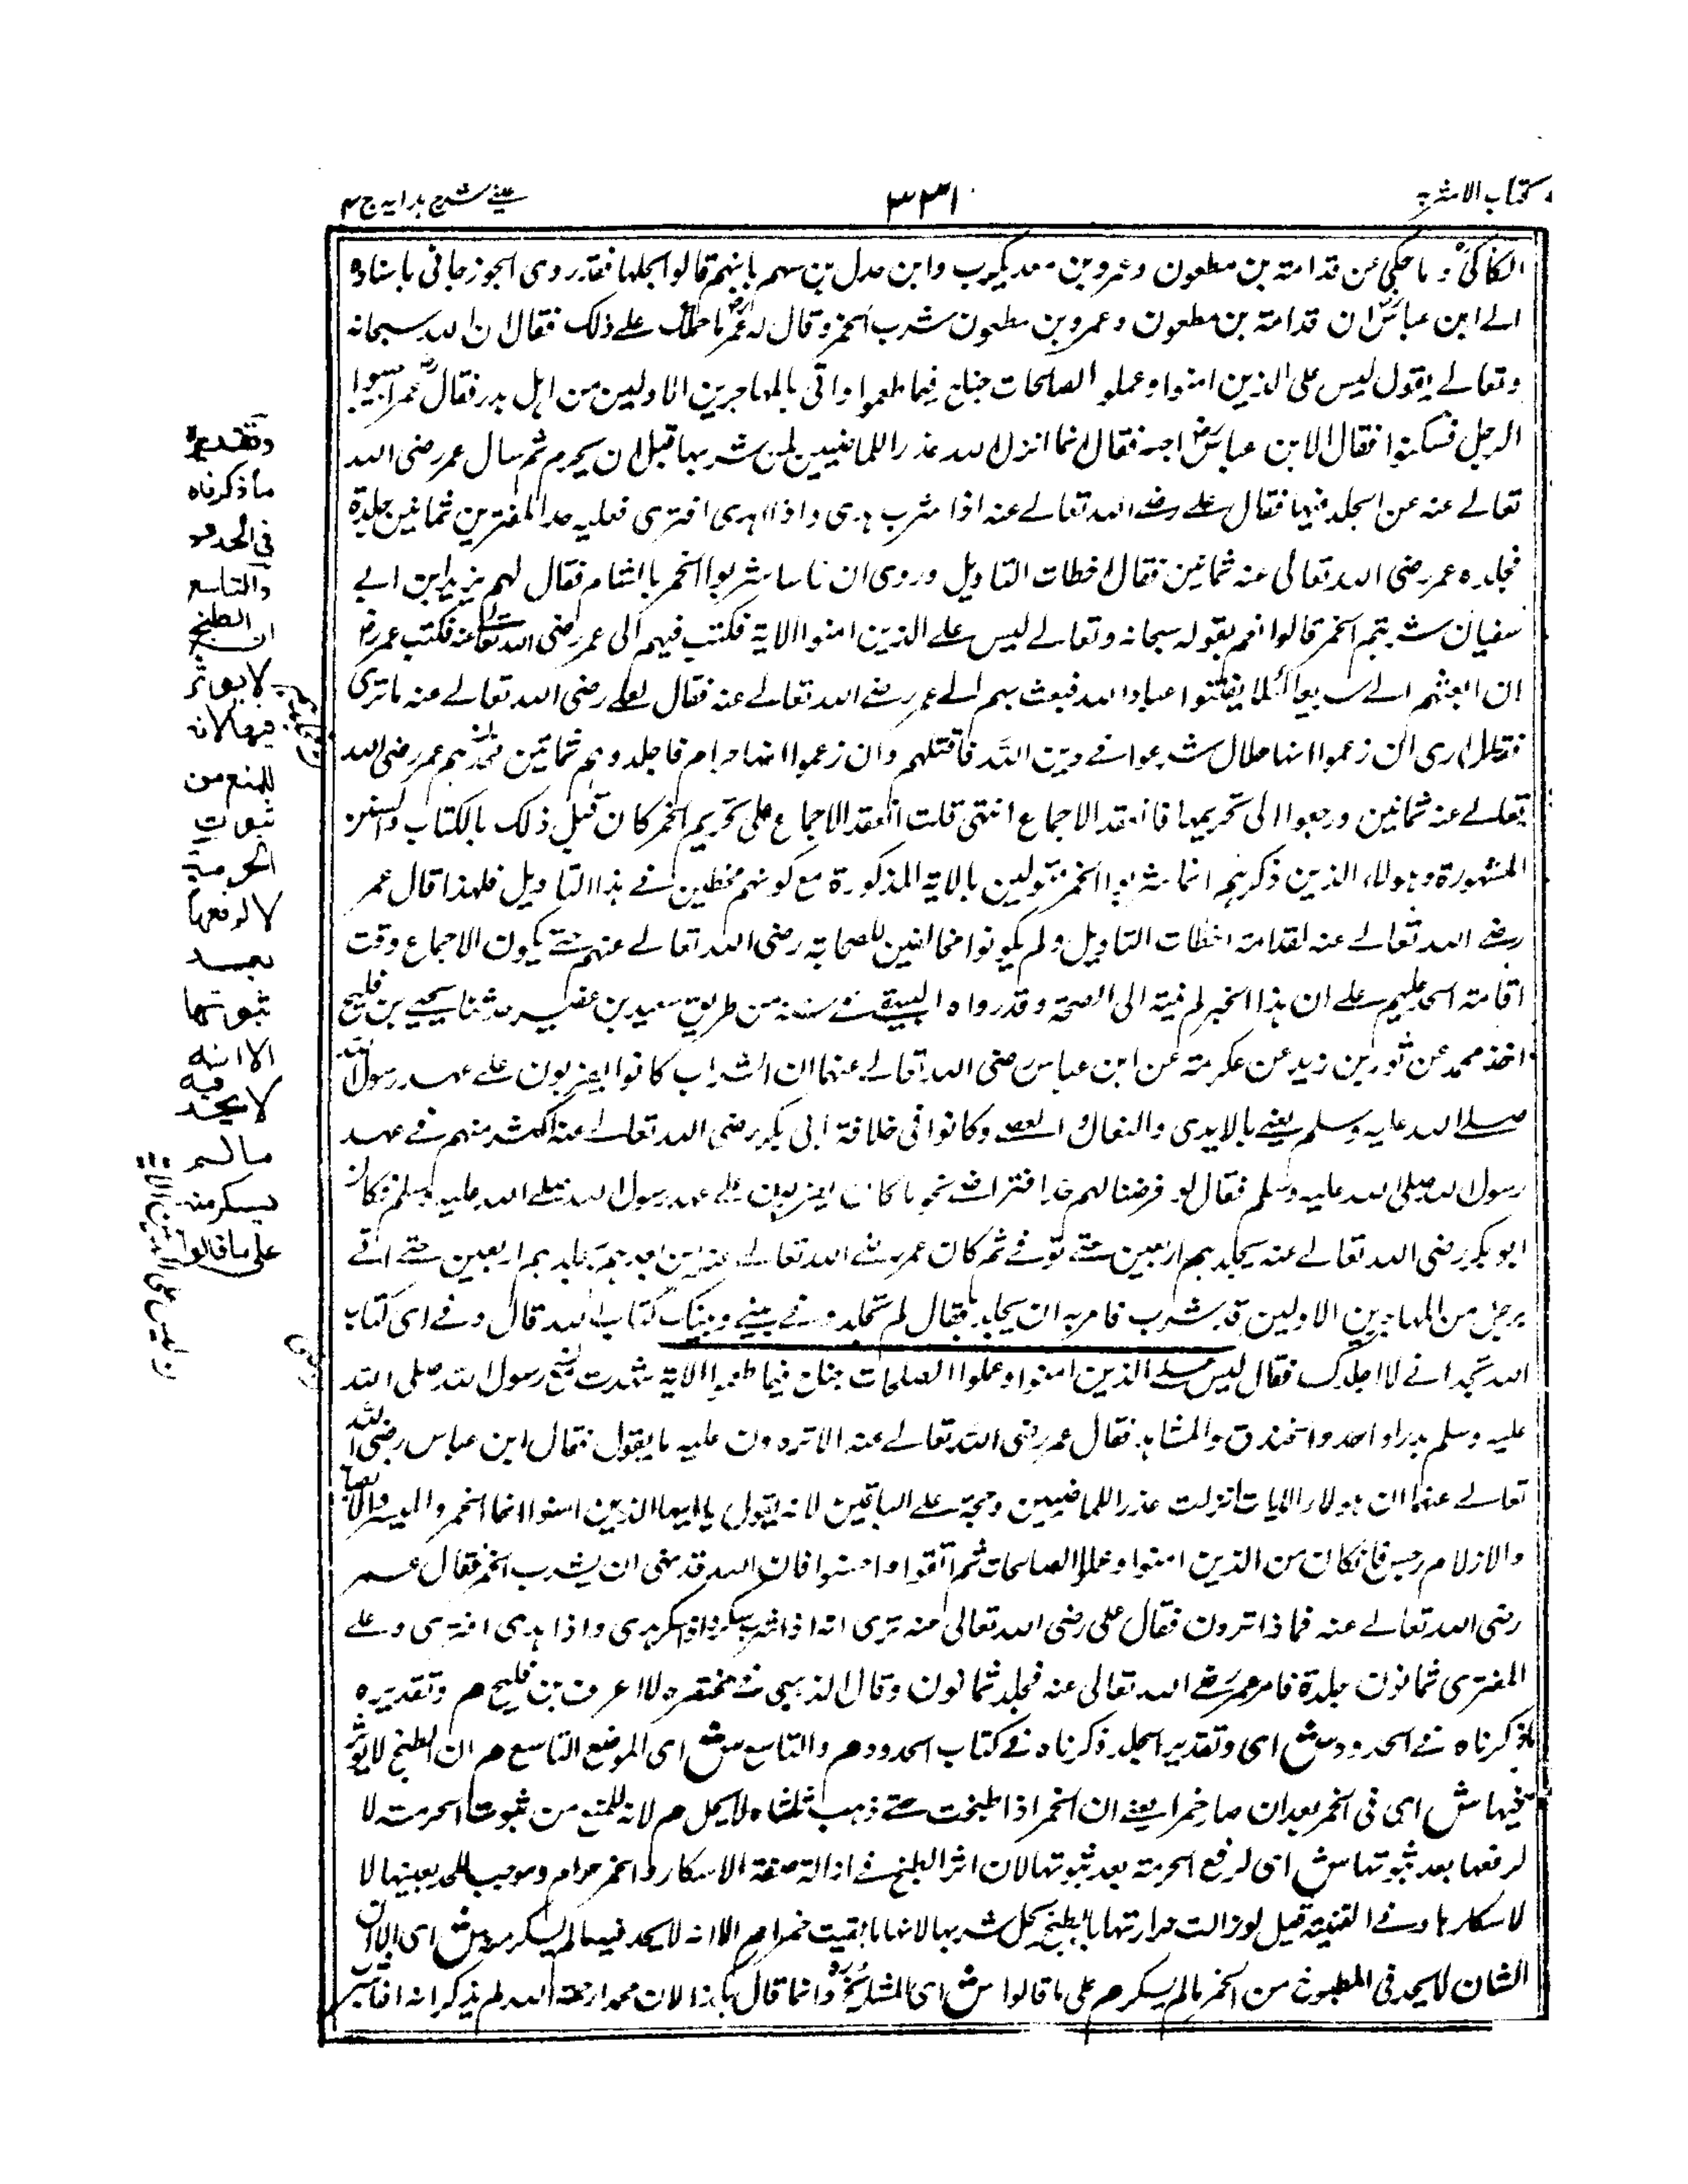 كتاب الاشربة
٣٣١
عيني شرح هدايه ج ٤
الكاكي وما حكي عن قدامة بن مظعون وعمرو بن معديكرب وابن سهم بانهم قالوا بحلها فقد روى الجوزجاني باسناده
الى ابن عباس ان قدامة بن مظعون وعمرو بن مظعون شرب الخمر وقال له عمر ما حملك على ذلك فقال ان الله سبحانه
وتعالى يقول ليس على الذين امنوا وعملوا الصلحات جناح فيما طعموا واني بالمهاجرين الاولين من اهل بدر فقال عمر اجيبوا
الرجل فسكتوا فقال لابن عباس اجبه فقال انما انزل الله عذرا للماضيين لمن شربها قبل ان يحرم ثم سال عمر رضى الله
تعالى عنه عن الجلد فيها فقال على رضى الله تعالى عنه اذا شرب هذى واذا هذى افترى فعليه حد المفترين ثمانين جلدة
فجلده عمر رضى الله تعالى عنه ثمانين فقال اخطات التاويل وروى ان ناسا شربوا الخمر بالشام فقال لهم يزيد ابن ابى
سفيان شربتم الخمر قالوا نعم بقوله سبحانه وتعالى ليس على الذين امنوا الاية فكتب فيهم الى عمر رضى الله تعالى عنه فكتب عمر رض
ان ابعثهم الى سريعا لئلا يفتنوا عباد الله فبعث بهم الى عمر رضى الله تعالى عنه فقال لعلى رضى الله تعالى عنه ما ترى
فقال ارى ان زعموا انها حلال شرعوا فى دين الله فاقتلهم وان زعموا انها حرام فاجلدوهم ثمانين فحدهم عمر رضى الله
تعالى عنه ثمانين ورجعوا الى تحريمها فانعقد الاجماع انتهى قلت انعقد الاجماع على تحريم الخمر كان قبل ذلك بالكتاب والسنة
المشهورة وهولاء الذين ذكرهم انما شربوا الخمر متولين بالاية المذكورة مع كونهم مخطين فى هذا التاويل فلهذا قال عمر
رضى الله تعالى عنه لقدامة اخطات التاويل ولم يكونوا مخالفين للصحابة رضى الله تعالى عنهم حتى يكون الاجماع وقت
اقامة الحد عليهم على ان هذا الخبر لم الى الصحة وقد رواه البيهقى فى سننه من طريق سعيد بن عفير حدثنا يحيى بن فليح
اخذ محمد عن ثور بن زيد عن عكرمة عن ابن عباس رضى الله تعالى عنهما ان الشراب كانوا يضربون على عهد رسول الله
صلى الله عليه وسلم يعنى بالايدى والنعال والعصى وكانوا فى خلافة ابى بكر رضى الله تعالى عنه اكثر منهم فى عهد
رسول الله صلى الله عليه وسلم فقال لو فرضنا لهم حدا نحو ما كان يضربون على عهد رسول الله صلى الله عليه وسلم فكان
ابو بكر رضى الله تعالى عنه يجلدهم اربعين حتى توفى ثم كان عمر رضى الله تعالى عنه من بعدهم يجلدهم اربعين حتى اتى
برجل من المهاجرين الاولين قد شرب فامر به ان يجلد فقال لم تجلدونى بينى وبينك كتاب الله قال وفى اى كتاب
الله تجد انى لا اجلدك فقال ليس على الذين امنوا وعملوا الصلحات جناح فيما طعموا الاية شهدت مع رسول الله صلى الله
عليه وسلم بدرا واحد والخندق والمشاهد فقال عمر رضى الله تعالى عنه الا تردون عليه ما يقول فقال ابن عباس رضى الله
تعالى عنهما ان هولاء الايات انزلت عذرا للماضيين وحجة على الباقين لانه يقول يا ايها الذين امنوا انما الخمر والميسر والانصاب
والازلام رجس فان كان من الذين امنوا وعملوا الصالحات ثم اتقوا واحسنوا فان الله قد نهى ان يشرب الخمر فقال عمر
رضى الله تعالى عنه فما ذا ترون فقال على رضى الله تعالى عنه ترى انه اذا شرب سكر واذا سكر هذى واذا هذى افترى وعلى
المفترى ثمانون جلدة فامر عمر رضى الله تعالى عنه فجلد ثمانون وقال الذهبى فى مختصره لا اعرف بن فليح م وتقديره
ما ذكرناه فى الحدود ش اى وتقدير الجلد ذكرناه فى كتاب الحدود م والتاسع ش اى الموضع التاسع م ان الطبخ لا يوثر
فيها ش اى فى الخمر بعد ان صار خمرا يعنى ان الخمر اذا طبخت حتى ذهب ثلثاه لا يحل م لانه للمنع من ثبوت الحرمة لا
لرفعها بعد ثبوتها ش اى لرفع الحرمة بعد ثبوتها لان اثر الطبخ فى ازالة صفة الاسكار والخمر حرام وموجب للحد بعينها لا
لاسكارها وفى القنية قيل لو زالت مرارتها بالطبخ يحل شربها لانها ما بقيت خمرا م الا انه لا يحد فيه ما لم يسكر منه ش اى الا ان
الشان لا يحد فى المطبوخ من الخمر ما لم يسكر م على ما قالوا ش اى المشايخ وانما قال هكذا لان محمدا رحمة الله لم يذكر انه
وتقديره
ما ذكرناه
فى الحدود
والتاسع
ان الطبخ
لا يوثر
فيها لانه
للمنع من
ثبوت
الحرمة
لا لرفعها
بعد
ثبوتها
الا انه
لا يحد فيه
ما لم
يسكر منه
على ما قالوا